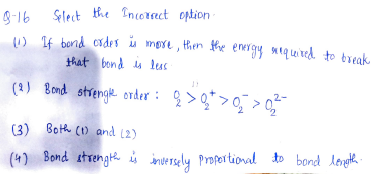 Q-16 Select the Incorrect option.
(1) If bond order is more, then the energy required to break
that bond is less
(2) Bond strength order : O₂ > O₂⁺ > O₂⁻ > O₂²⁻
(3) Both (1) and (2)
(4) Bond strength is inversely proportional to bond length.